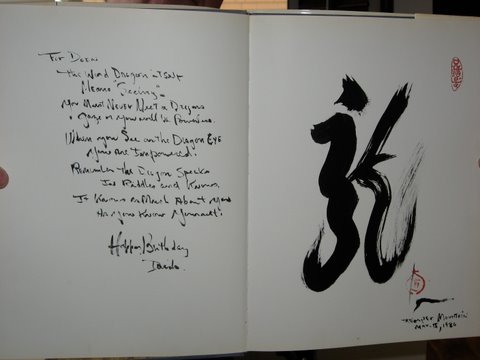 For
The Word Dragon itself
Means "Seeing".
You Must Never Meet a Dragons
gaze or you will be Powerless.
When you See in the Dragon Eye
You are Empowered!
Remember the Dragon Speaks
In Riddles and
It Knows as Much About you
As you Know Yourself!
Happy Birthday
龍
Mountain
Mar. 15, 1986